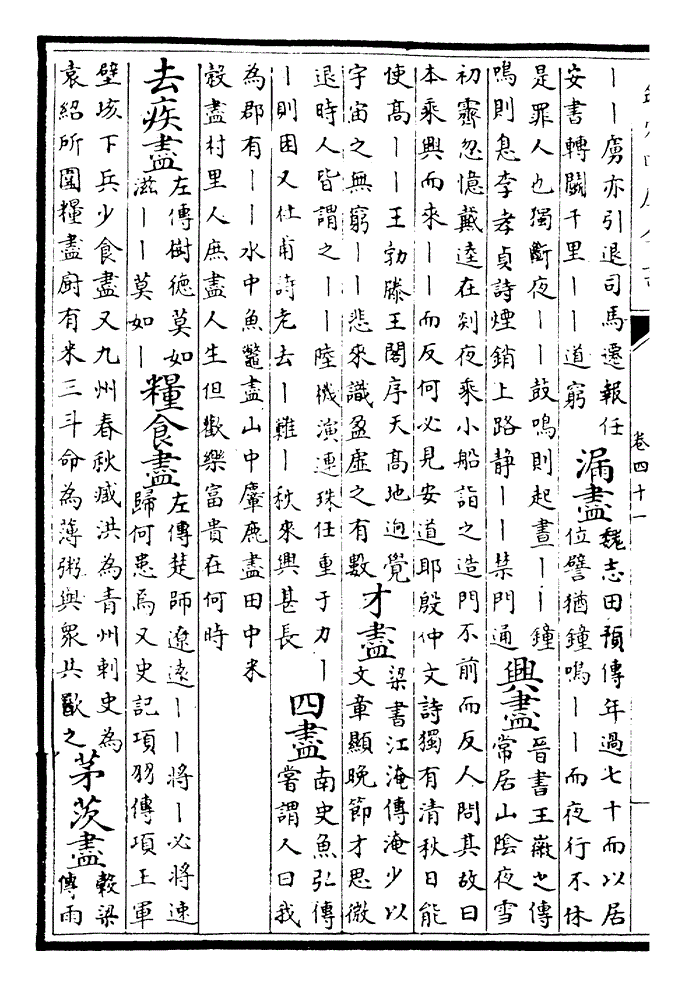 卷四十一
丨丨虜亦引退司馬遷報任
安書轉鬬千里丨丨道窮
漏盡
魏志田預傳年過七十而以居
位譬猶鐘鳴丨丨而夜行不休
是罪人也獨斷夜丨丨鼓鳴則起晝丨丨鐘
鳴則息李孝貞詩煙銷上路静丨丨禁門通
興盡
晉書王徽之傳
常居山陰夜雪
初霽忽憶戴逵在剡夜乘小船詣之造門不前而反人問其故曰
本乘興而來丨丨而反何必見安道耶殷仲文詩獨有清秋日能
使髙丨丨王勃滕王閣序天髙地迥覺
宇宙之無窮丨丨悲來識盈虛之有數
才盡
梁書江淹傳淹少以
文章顯晚節才思微
退時人皆謂之丨丨陸機演連珠任重于力丨
丨則困又杜甫詩老去丨難丨秋來興甚長
四盡
南史魚弘傳
嘗謂人曰我
為郡有丨丨水中魚鼈盡山中麞鹿盡田中米
穀盡村里人庶盡人生但歡樂富貴在何時
去疾盡
左傳樹德莫如
滋丨丨莫如丨
糧食盡
左傳楚師遼遠丨丨將丨必將速
歸何患焉又史記項羽傳項王軍
壁垓下兵少食盡又九州春秋臧洪為青州刺史為
袁紹所圍糧盡厨有米三斗命為薄粥與衆共歠之
茅茨盡
穀梁
傳雨